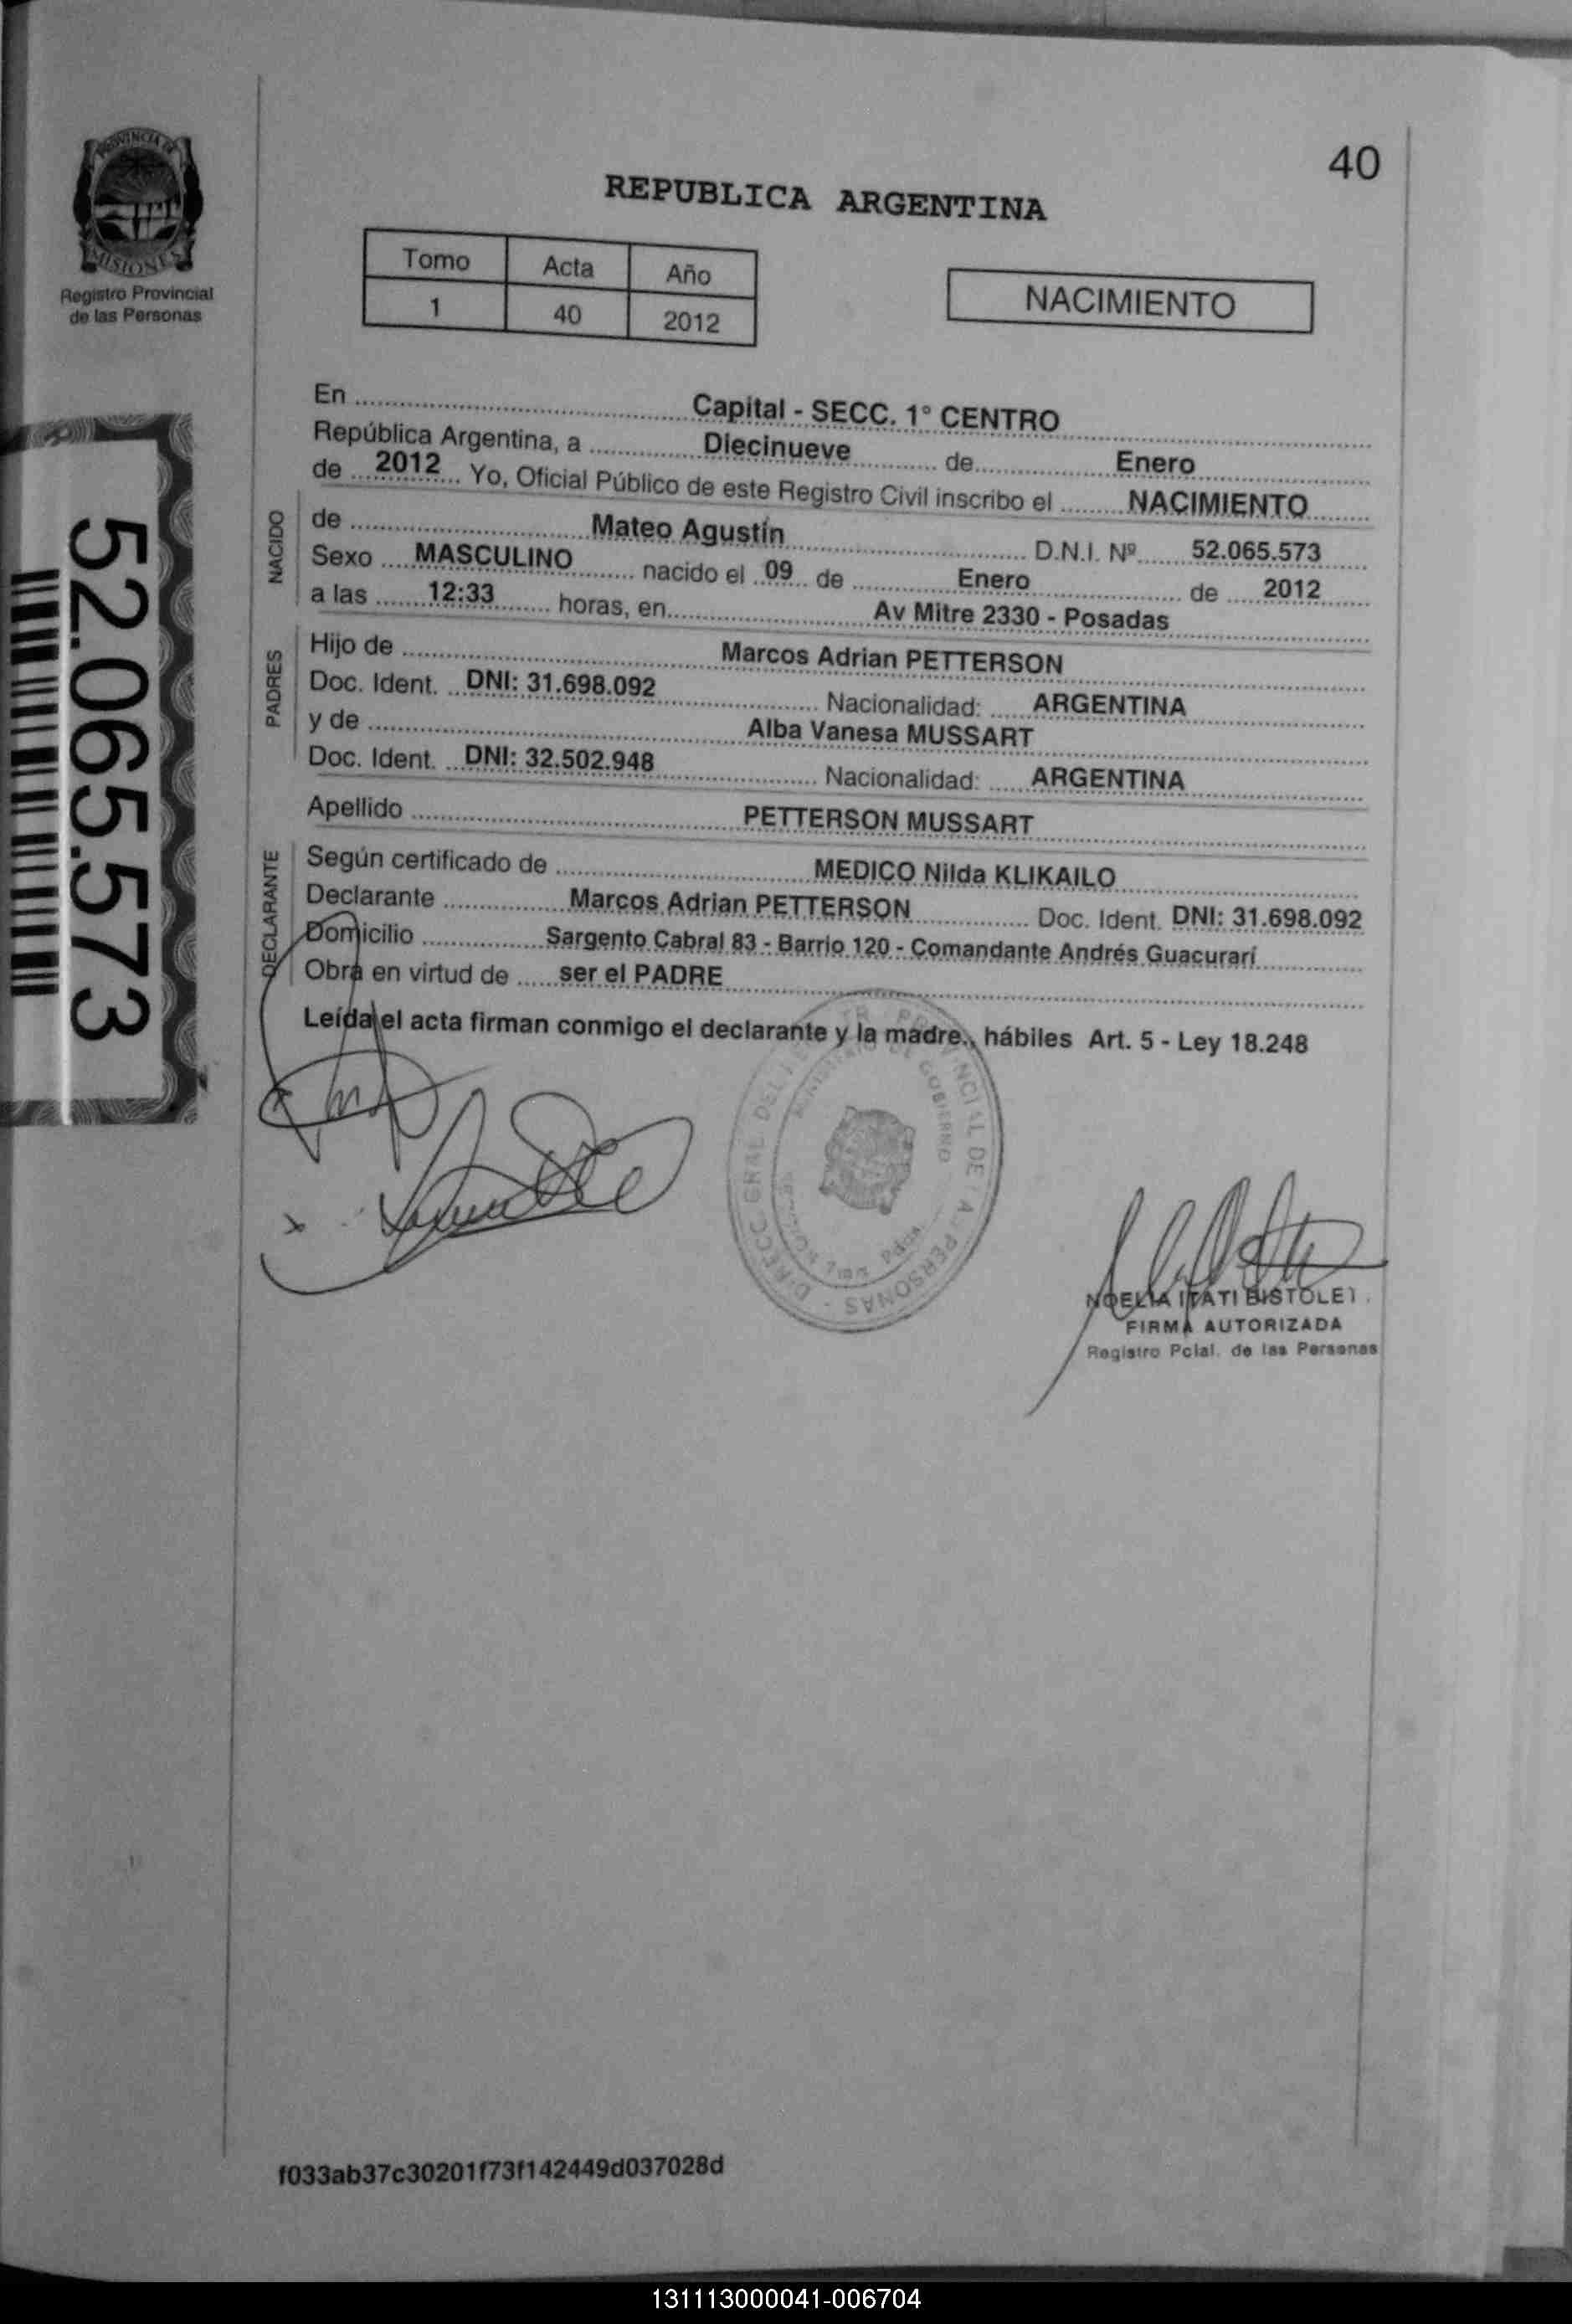 40
PROVINCIA DE
MISIONES
Registro Provincial
de las Personas
REPUBLICA ARGENTINA
Tomo Acta Año
1 40 2012
NACIMIENTO
En Capital - SECC. 1° CENTRO
República Argentina, a Diecinueve de Enero
de 2012 Yo, Oficial Público de este Registro Civil inscribo el NACIMIENTO
NACIDO
de Mateo Agustín D.N.I. Nº 52.065.573
Sexo MASCULINO nacido el 09 de Enero de 2012
a las 12:33 horas, en Av Mitre 2330 - Posadas
PADRES
Hijo de Marcos Adrian PETTERSON
Doc. Ident. DNI: 31.698.092 Nacionalidad: ARGENTINA
y de Alba Vanesa MUSSART
Doc. Ident. DNI: 32.502.948 Nacionalidad: ARGENTINA
Apellido PETTERSON MUSSART
DECLARANTE
Según certificado de MEDICO Nilda KLIKAILO
Declarante Marcos Adrian PETTERSON Doc. Ident. DNI: 31.698.092
Domicilio Sargento Cabral 83 - Barrio 120 - Comandante Andrés Guacurarí
Obra en virtud de ser el PADRE
Leída el acta firman conmigo el declarante y la madre., hábiles Art. 5 - Ley 18.248
52.065.573
NOELIA ITATI
FIRMA AUTORIZADA
Registro Pcial. de las Personas
f033ab37c30201f73f142449d037028d
131113000041-006704